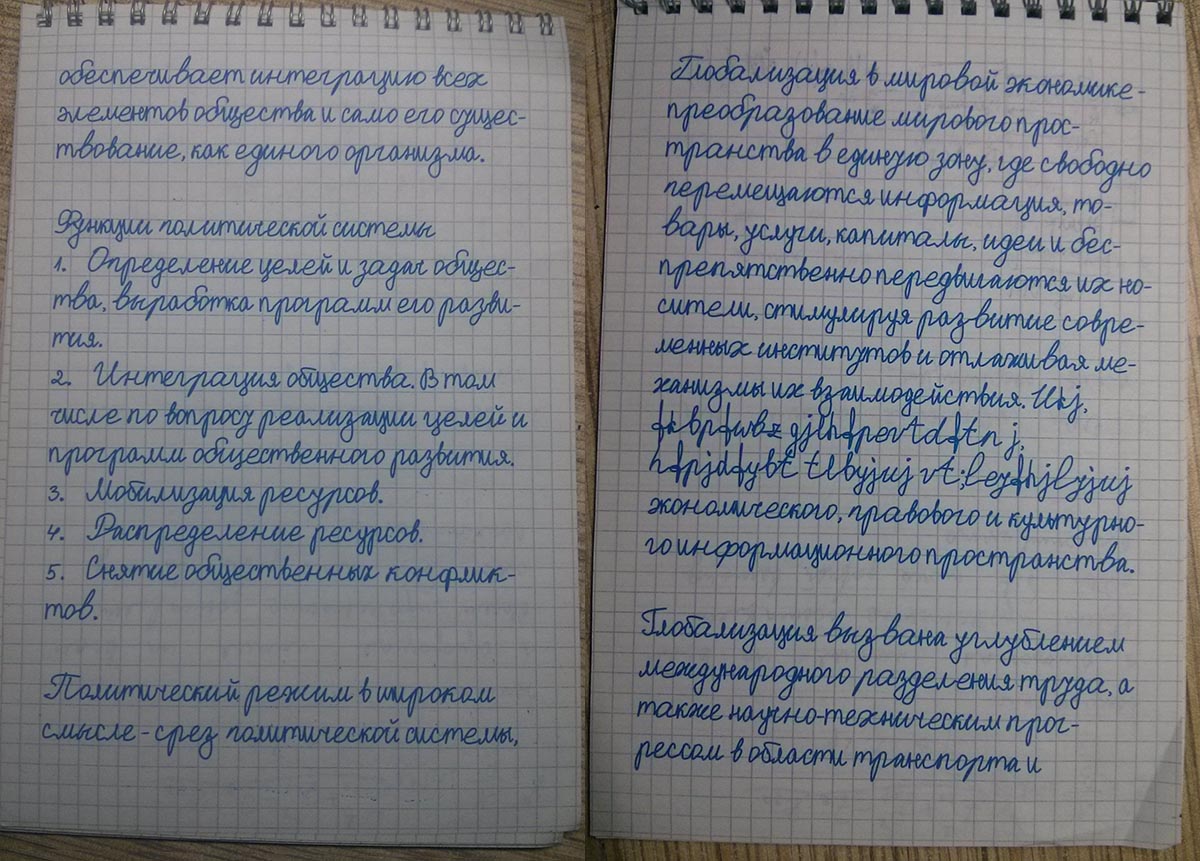 обеспечивает интеграцию всех
элементов общества и само его сущес-
твование, как единого организма.
Функции политической системы
1. Определение целей и задач общес-
тва, выработка программ его разви-
тия.
2. Интеграция общества. В том
числе по вопросу реализации целей и
программ общественного развития.
3. Мобилизация ресурсов.
4. Распределение ресурсов.
5. Снятие общественных конфлик-
тов.
Политический режим в широком
смысле - срез политической системы,
Глобализация в мировой экономике -
преобразование мирового прос-
транства в единую зону, где свободно
перемещаются информация, то-
вары, услуги, капиталы, идеи и бес-
препятственно передвигаются их но-
сители, стимулируя развитие совре-
менных институтов и отлаживая ме-
ханизмы их взаимодействия. Ukj,
fkbpfwbz gjlhfpevtdftn j,
hfpjdfybt tlbyjuj vt;leyfhjlyjuj
экономического, правового и культурно-
го информационного пространства.
Глобализация вызвана углублением
международного разделения труда, а
также научно-техническим прог-
рессом в области транспорта и